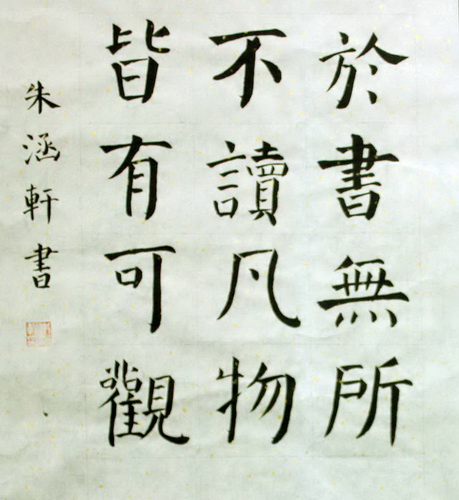 於書無所
不讀凡物
皆有可觀
朱涵軒書